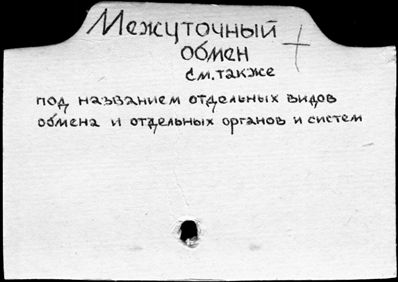 Межуточный
обмен
см. также
под названием отдельных видов
обмена и отдельных органов и систем